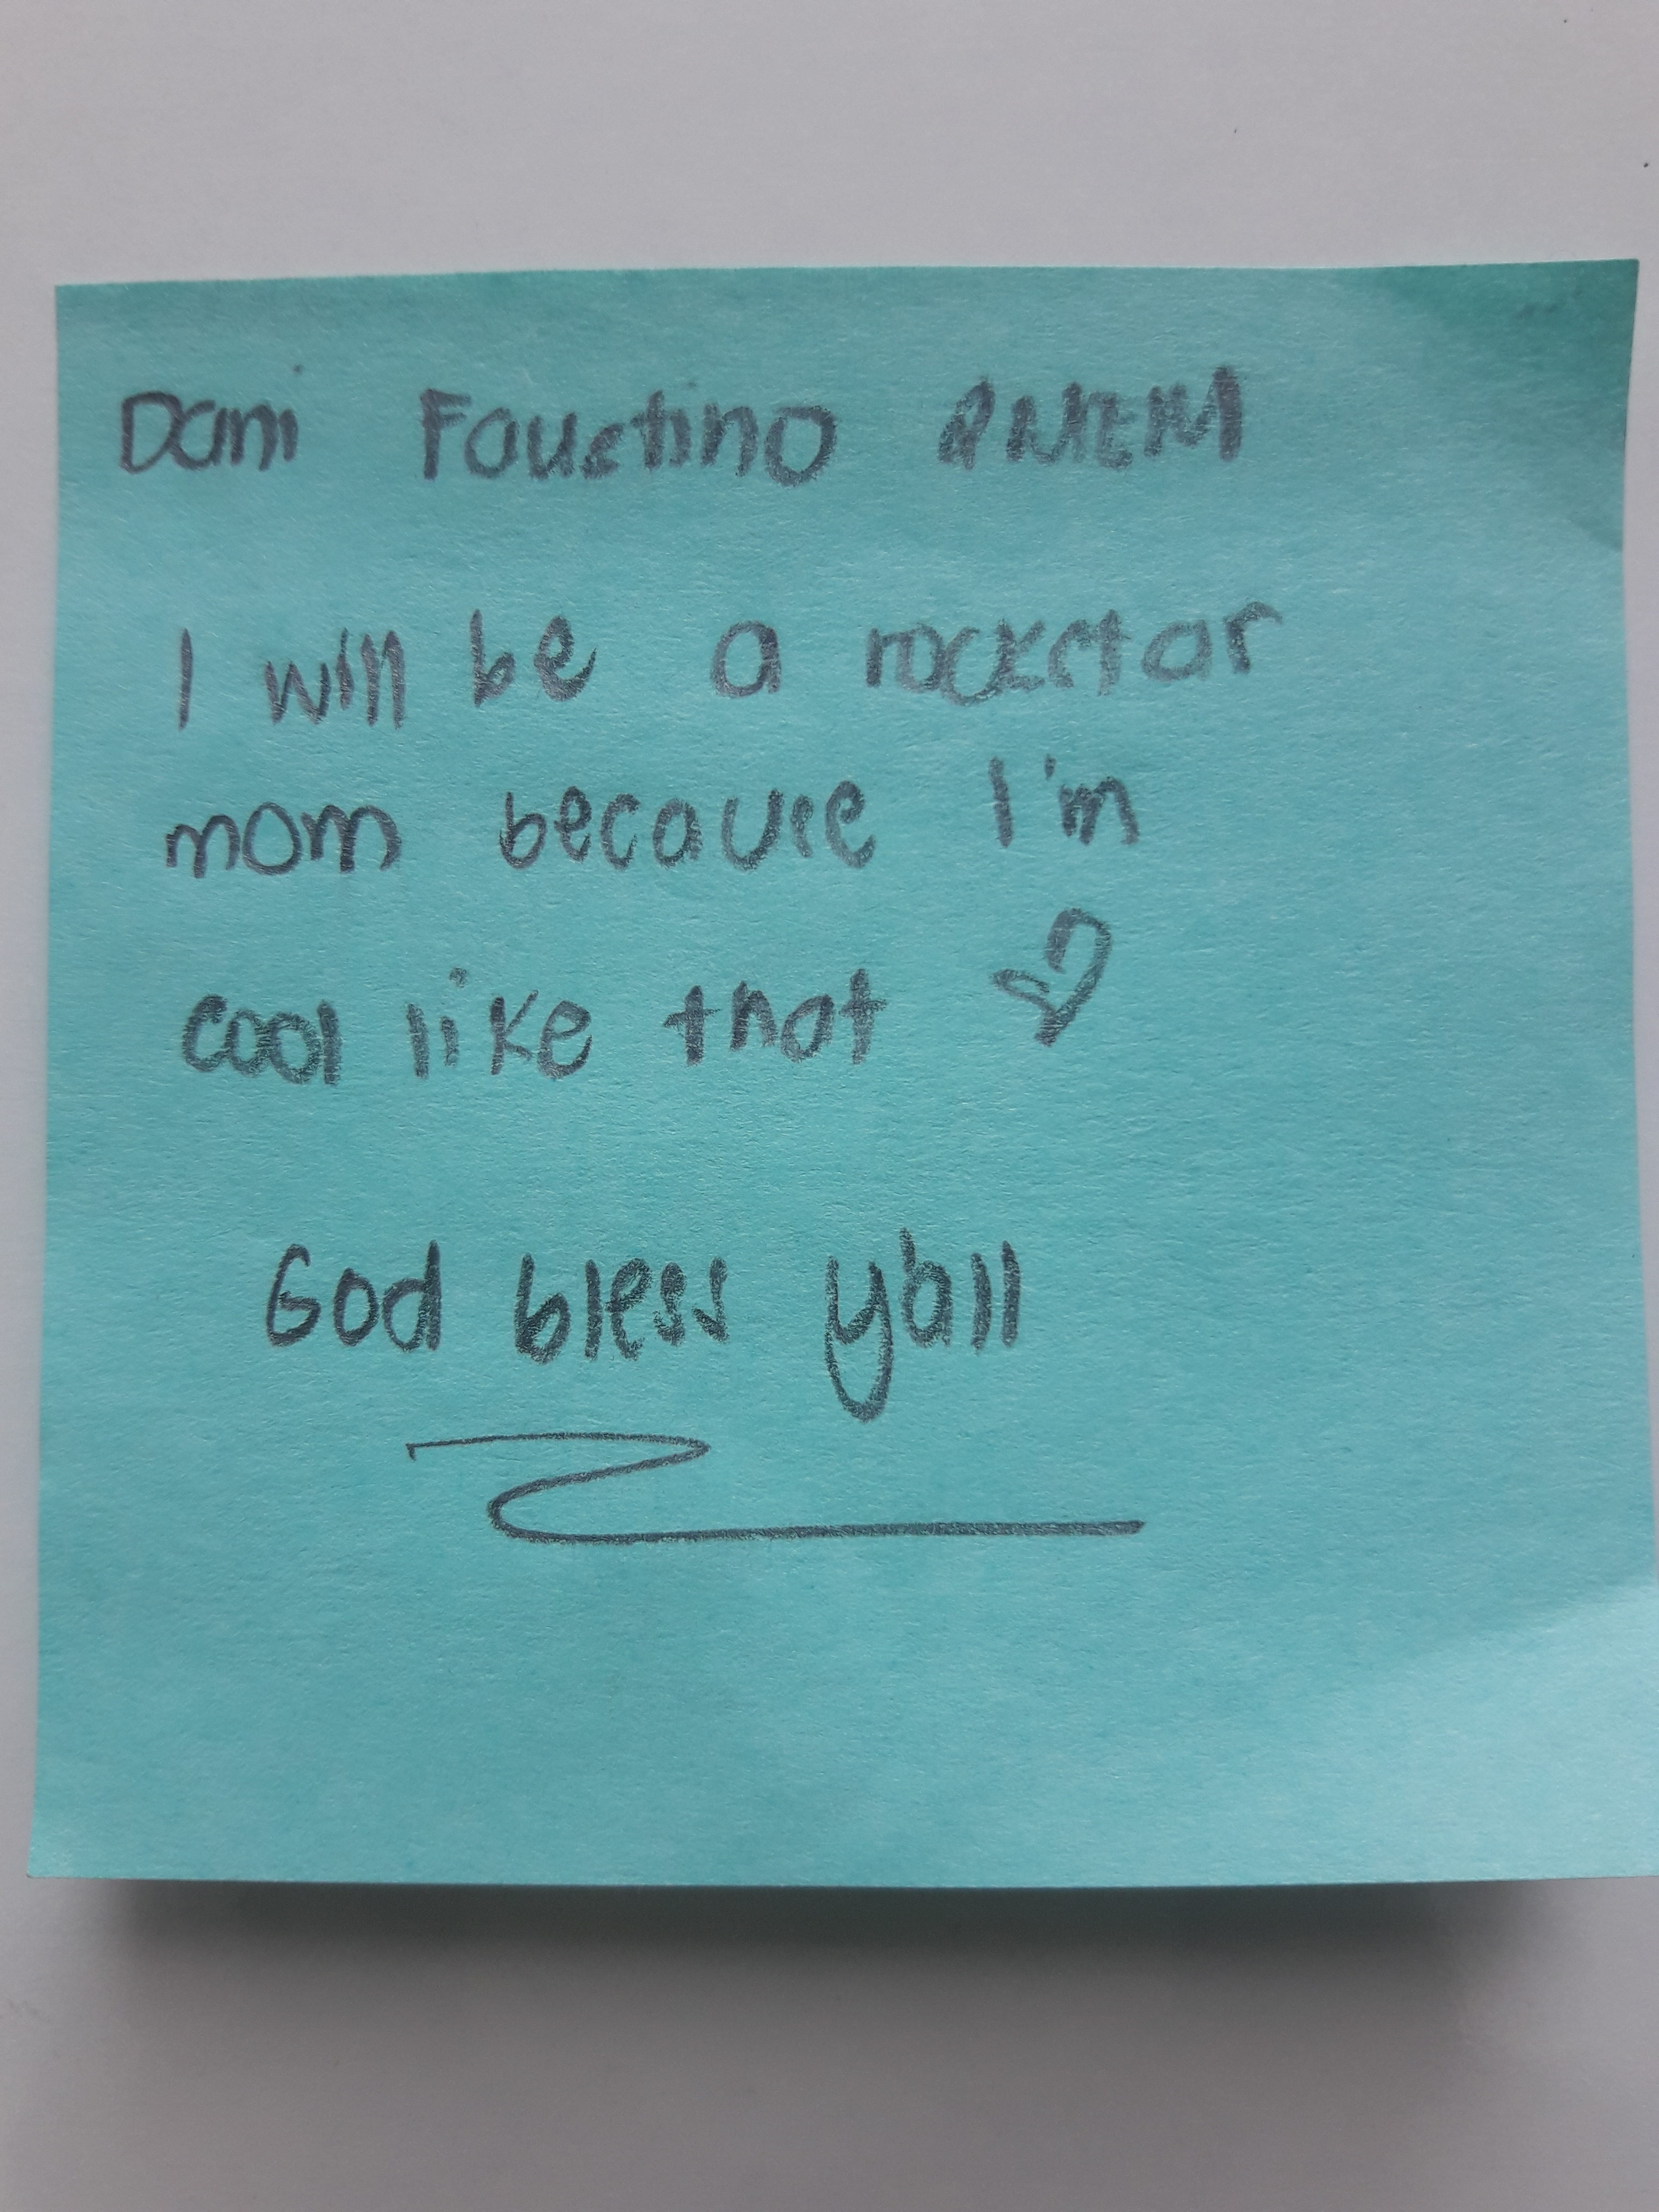 Dani Faustino
I will be a rockstar
mom because I'm
cool like that ♡
God bless y'all